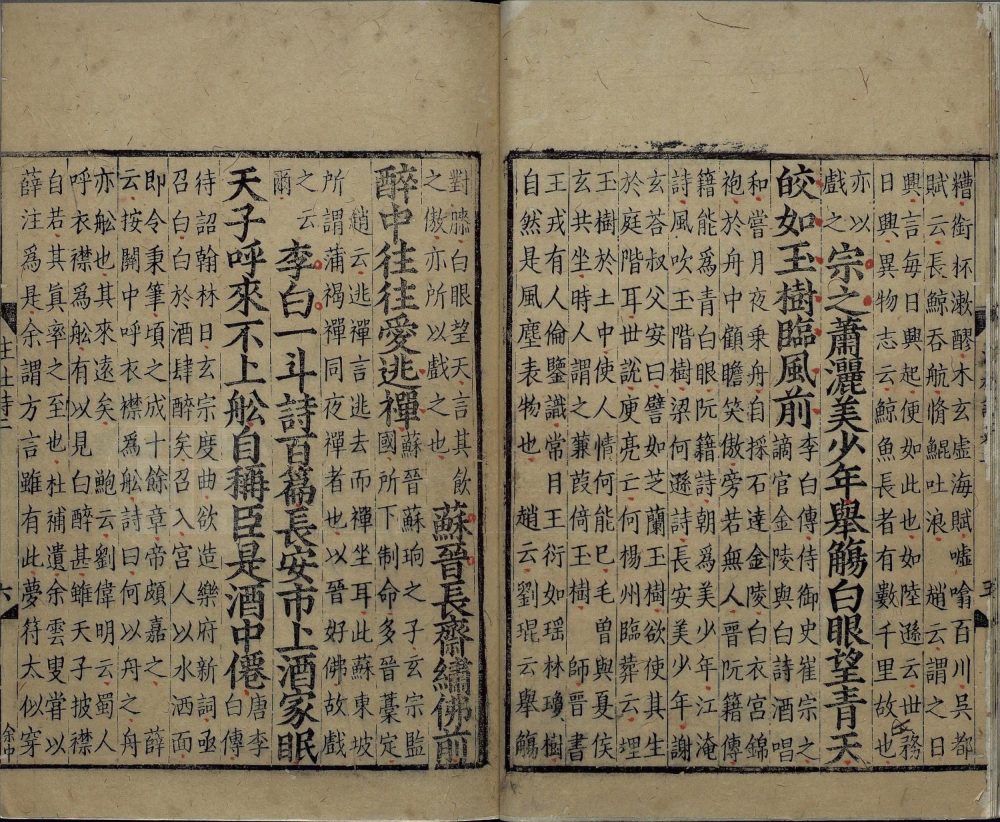 糟銜杯漱醪木玄虛海賦噓噏百川吳都
賦云長鯨吞航脩鯤吐浪 趙云謂之日
興言每日興起便如此也如陸遜云世務
日興異物志云鯨魚長者有數千里故也
亦以
戲之
宗之蕭灑美少年舉觴白眼望青天
皎如玉樹臨風前
李白傳侍御史崔宗之
謫官金陵與白詩酒唱
和嘗月夜乘舟自採石達金陵白衣宮錦
袍於舟中顧瞻笑傲旁若無人晉阮籍傳
籍能爲青白眼阮籍詩朝爲美少年江淹
詩風吹玉階樹梁何遜詩長安美少年謝
玄荅叔父安曰譬如芝蘭玉樹欲使其生
於庭階耳世說庾亮亡何楊州臨葬云埋
玉樹於土中使人情何能已毛曽與夏侯
玄共坐時人謂之蒹葭倚玉樹 師晉書
王戎有人倫鑒識常月王衍如瑶林瓊樹
自然是風塵表物也 趙云劉琨云舉觴
對膝白眼望天言其飲
之傲亦所以戲之也
蘇晉長齋繡佛前
醉中往往愛逃禪
蘇晉蘇珦之子玄宗監
國所下制命多晉藁定
趙云逃禪言逃去而禪坐耳此蘇東坡
所謂蒲褐禪同夜禪者也以晉好佛故戲
之云
爾
李白一斗詩百篇長安市上酒家眠
天子呼來不上舩自稱臣是酒中僊
唐李
白傳
待詔翰林日玄宗度曲欲造樂府新詞亟
召白白於酒肆醉矣召入宮人以水洒面
即令秉筆頃之成十餘章帝頗嘉之 薛
云按關中呼衣襟爲舩詩曰何以舟之舟
亦舩也其來遠矣 鮑云劉偉明云蜀人
呼衣襟爲舩有以見白醉甚雖天子披襟
自若其眞率之至也杜補遺余雲叟甞以
薛注爲是余謂方言雖有此夢符太似穿
六
余中